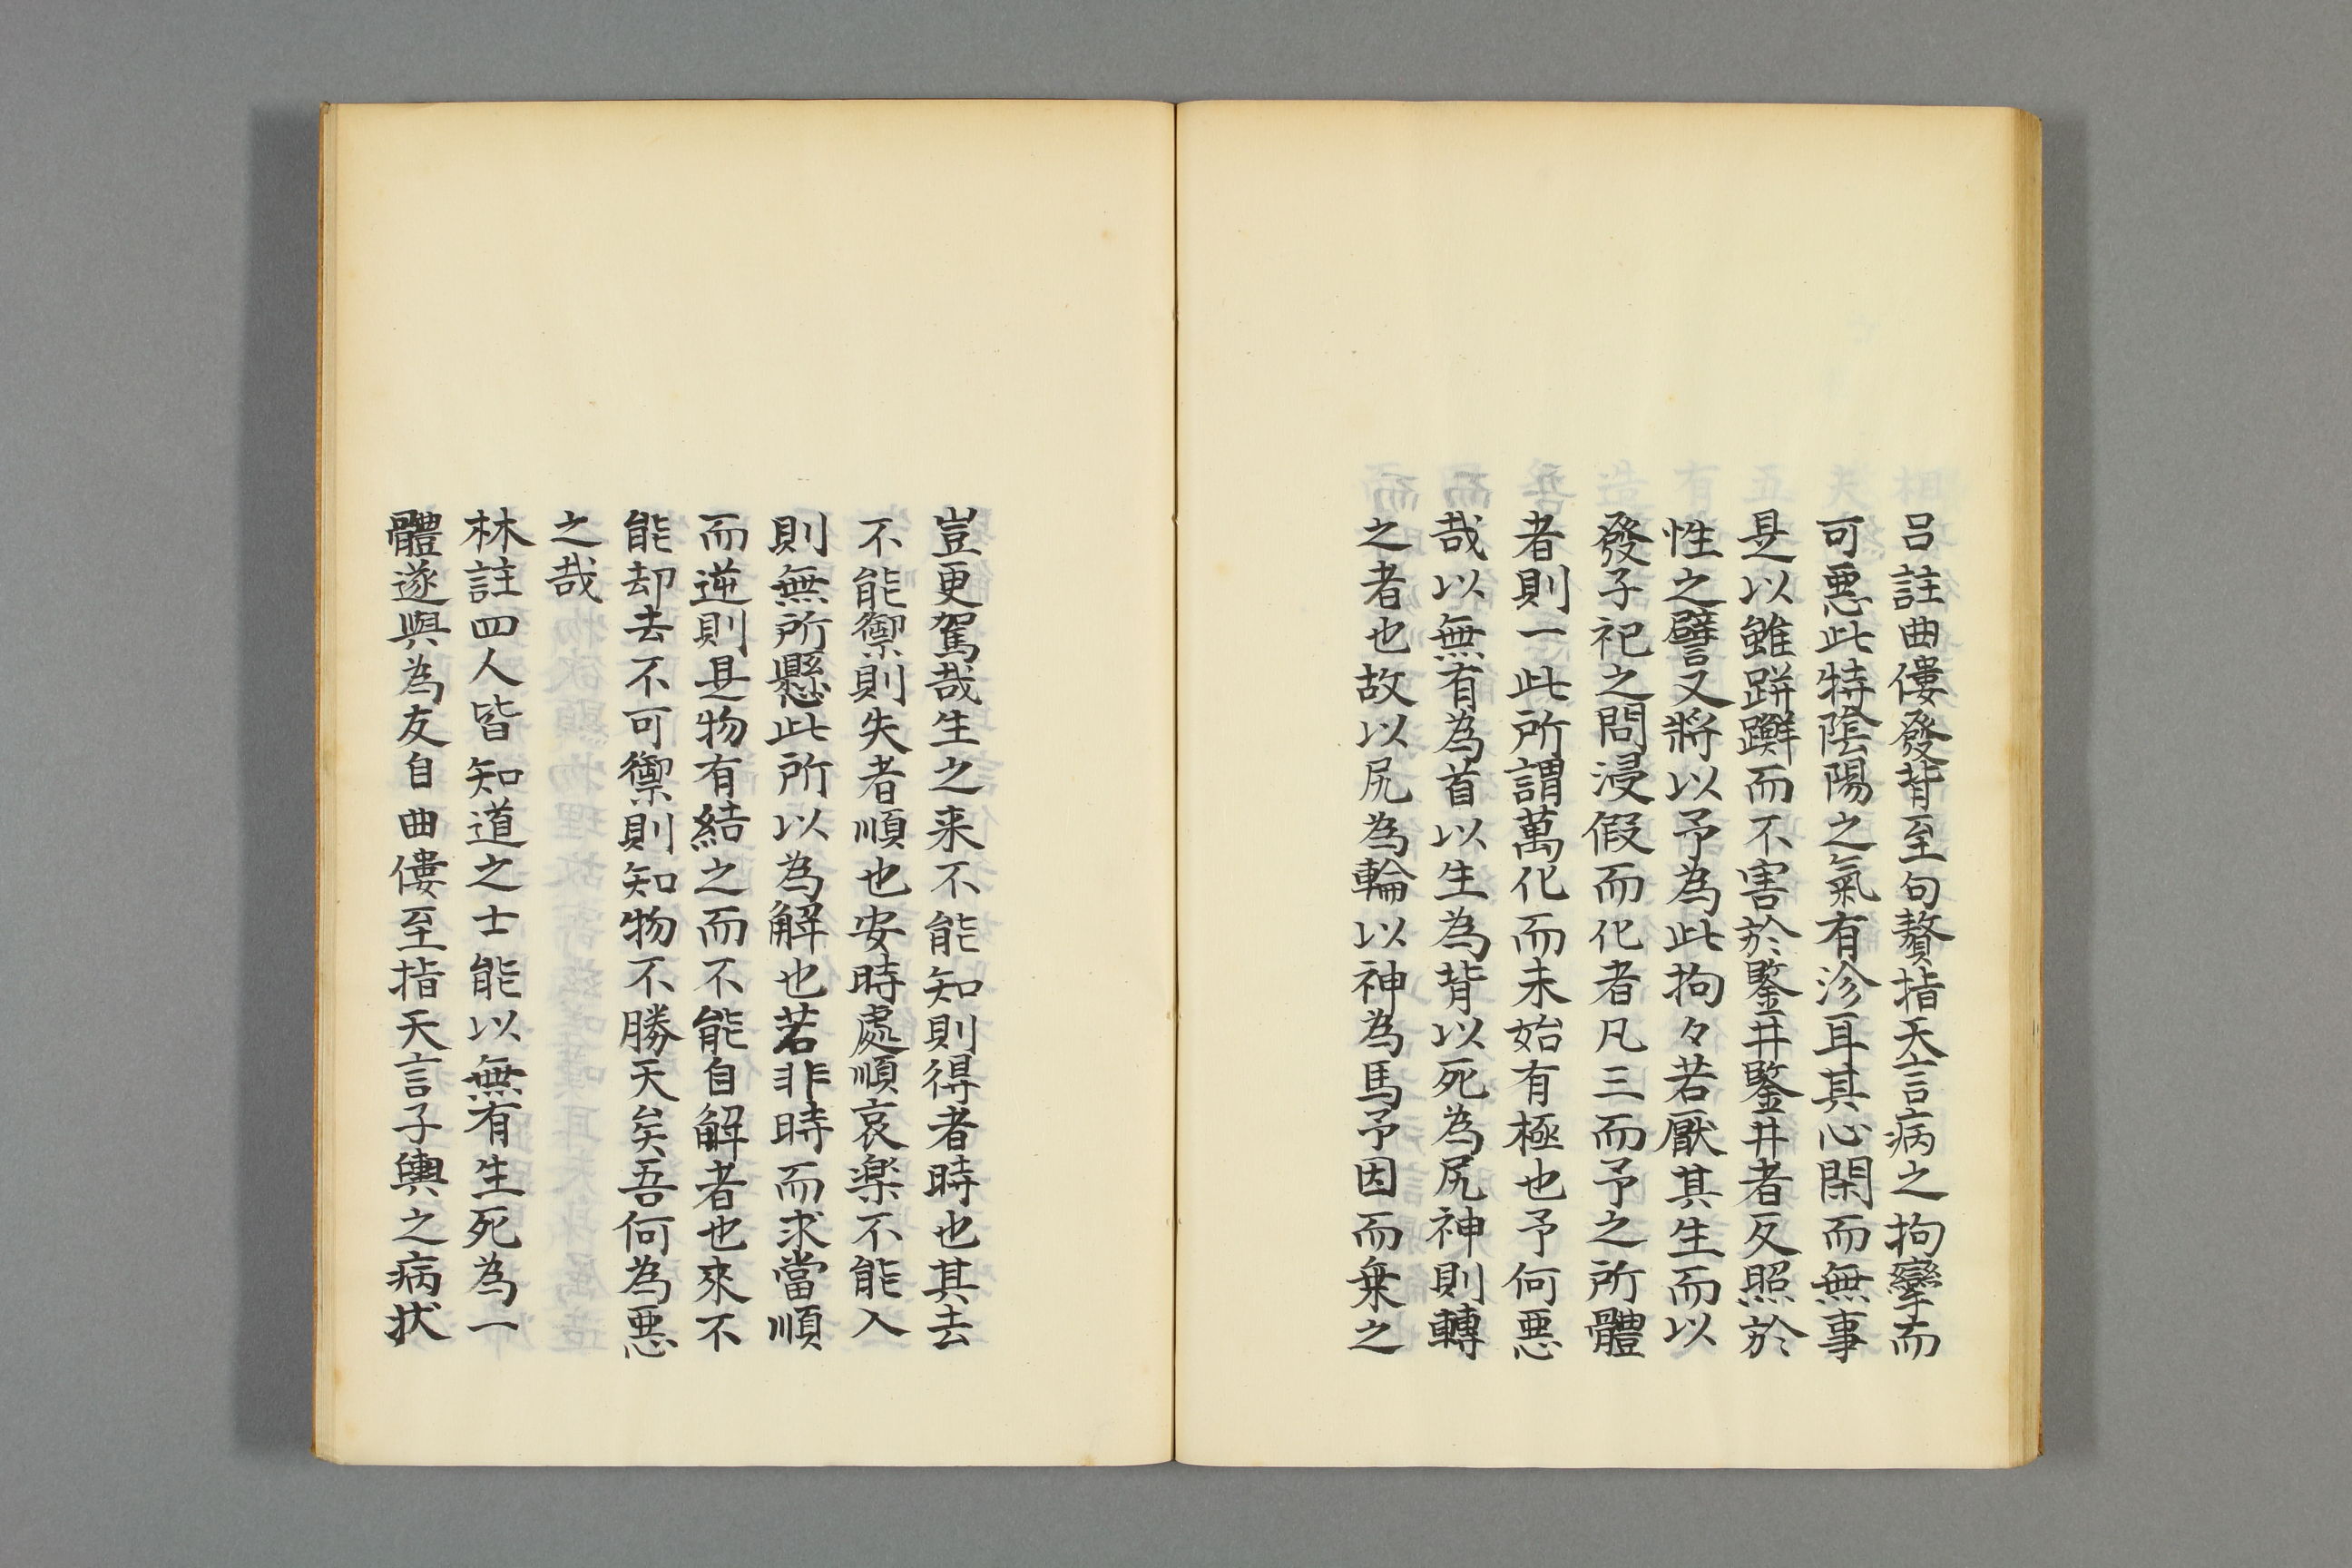 呂註曲僂發背至句贅指天言病之拘攣而
可惡此特陰陽之氣有沴耳其心閑而無事
是以雖跰𨇤而不害於鑒井鑒井者反照於
性之譬又將以予為此拘々若厭其生而以
發子祀之問浸假而化者凡三而予之所體
者則一此所謂萬化而未始有極也予何惡
哉以無有為首以生為背以死為尻神則轉
之者也故以尻為輪以神為馬予因而乗之
豈更駕哉生之来不能知則得者時也其去
不能禦則失者順也安時處順哀楽不能入
則無所懸此所以為解也若非時而求當順
而逆則是物有結之而不能自解者也來不
能却去不可禦則知物不勝天矣吾何為惡
之哉
林註四人皆知道之士能以無有生死為一
體遂與為友自曲僂至指天言子輿之病状